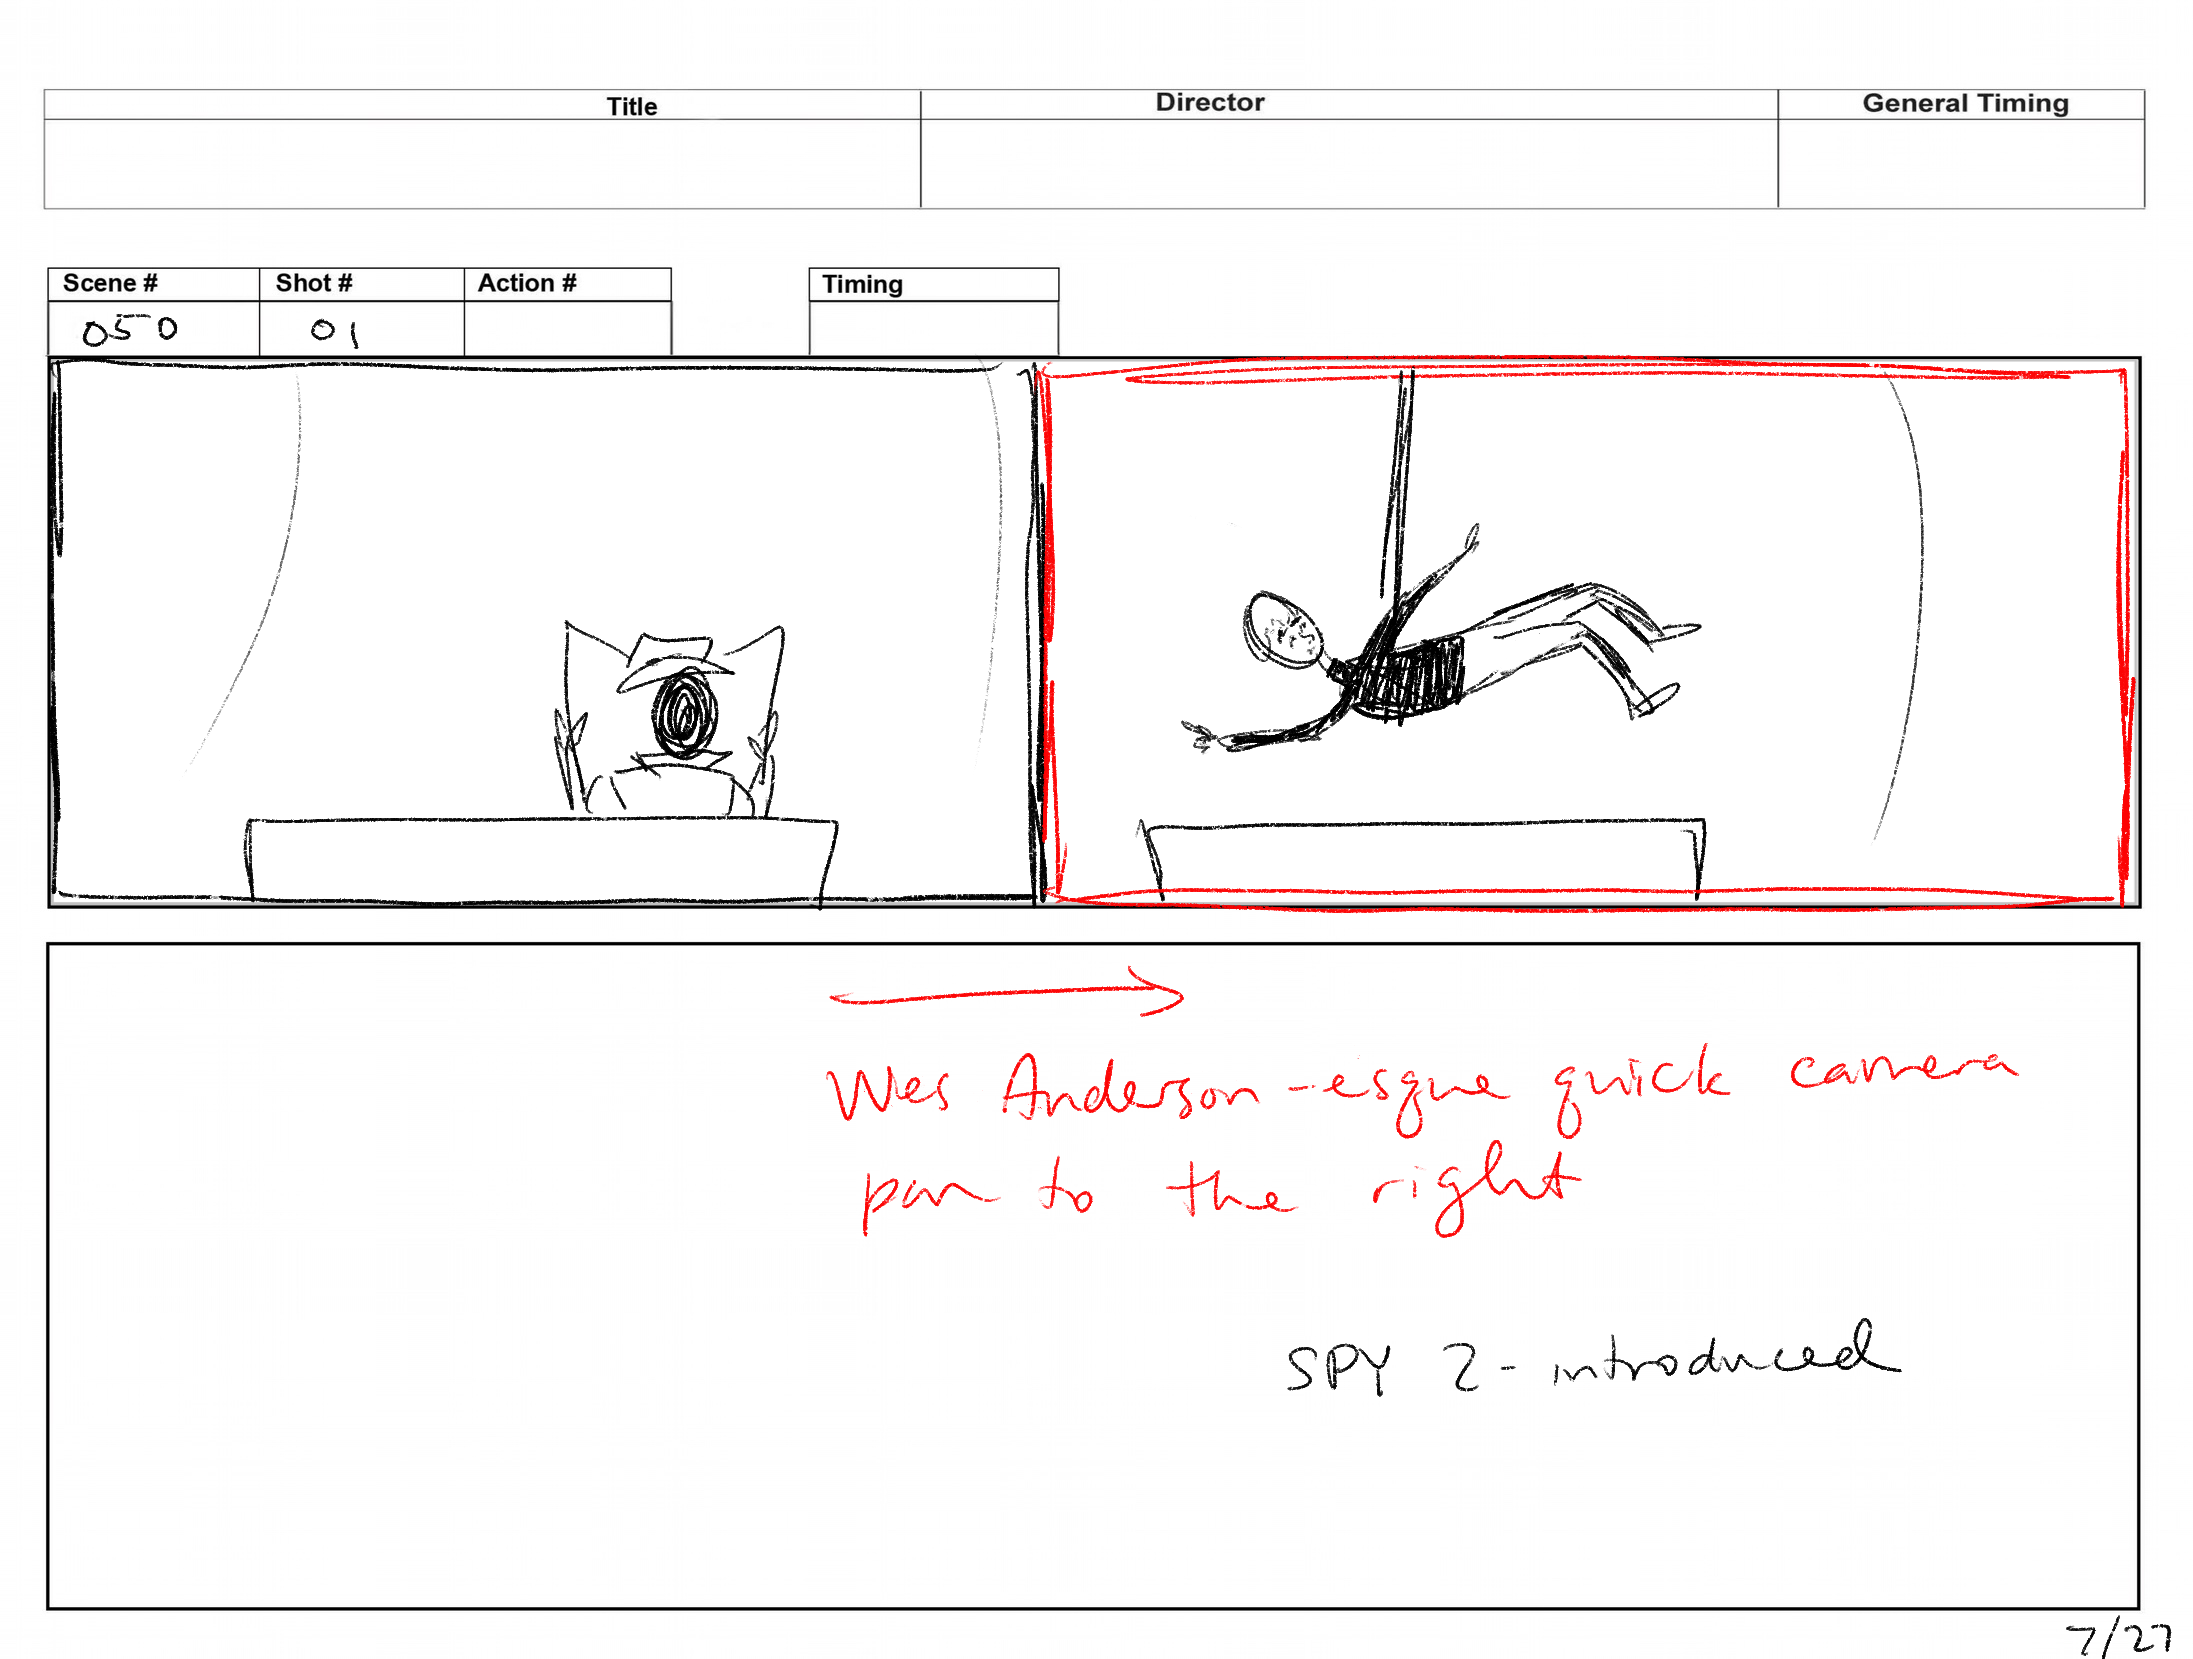 Title Director General Timing
Scene # Shot # Action # Timing
050 01
Wes Anderson-esque quick camera
pan to the right
SPY 2 - introduced
7/27